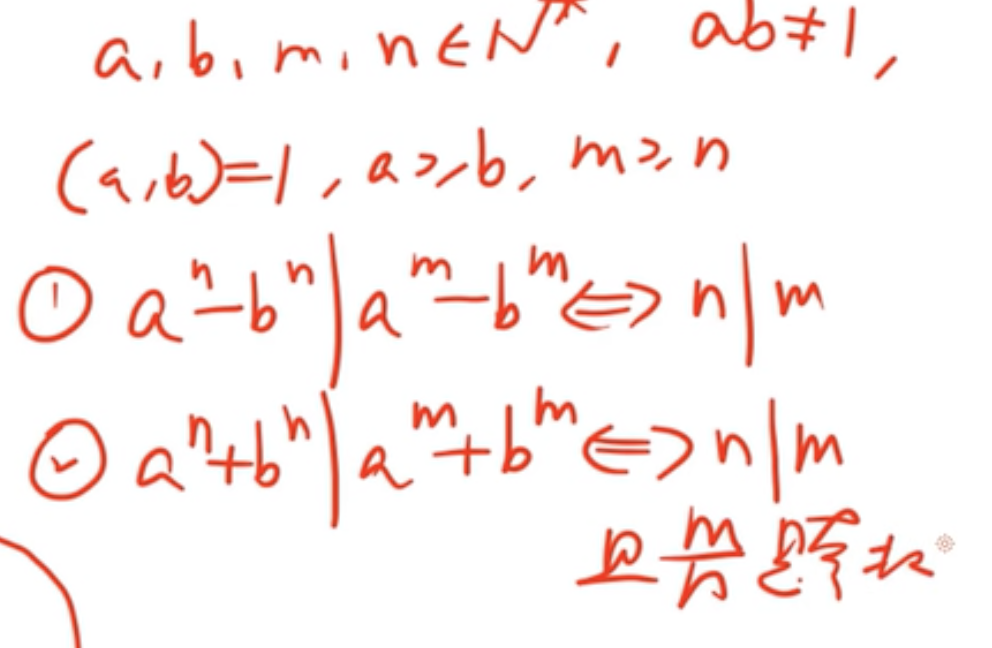 a, b, m, n ∈ N*, ab≠1,
(a,b)=1, a≥b, m≥n
① aⁿ-bⁿ | aᵐ-bᵐ ⟺ n|m
② aⁿ+bⁿ | aᵐ+bᵐ ⟺ n|m
且 m/n 是奇数